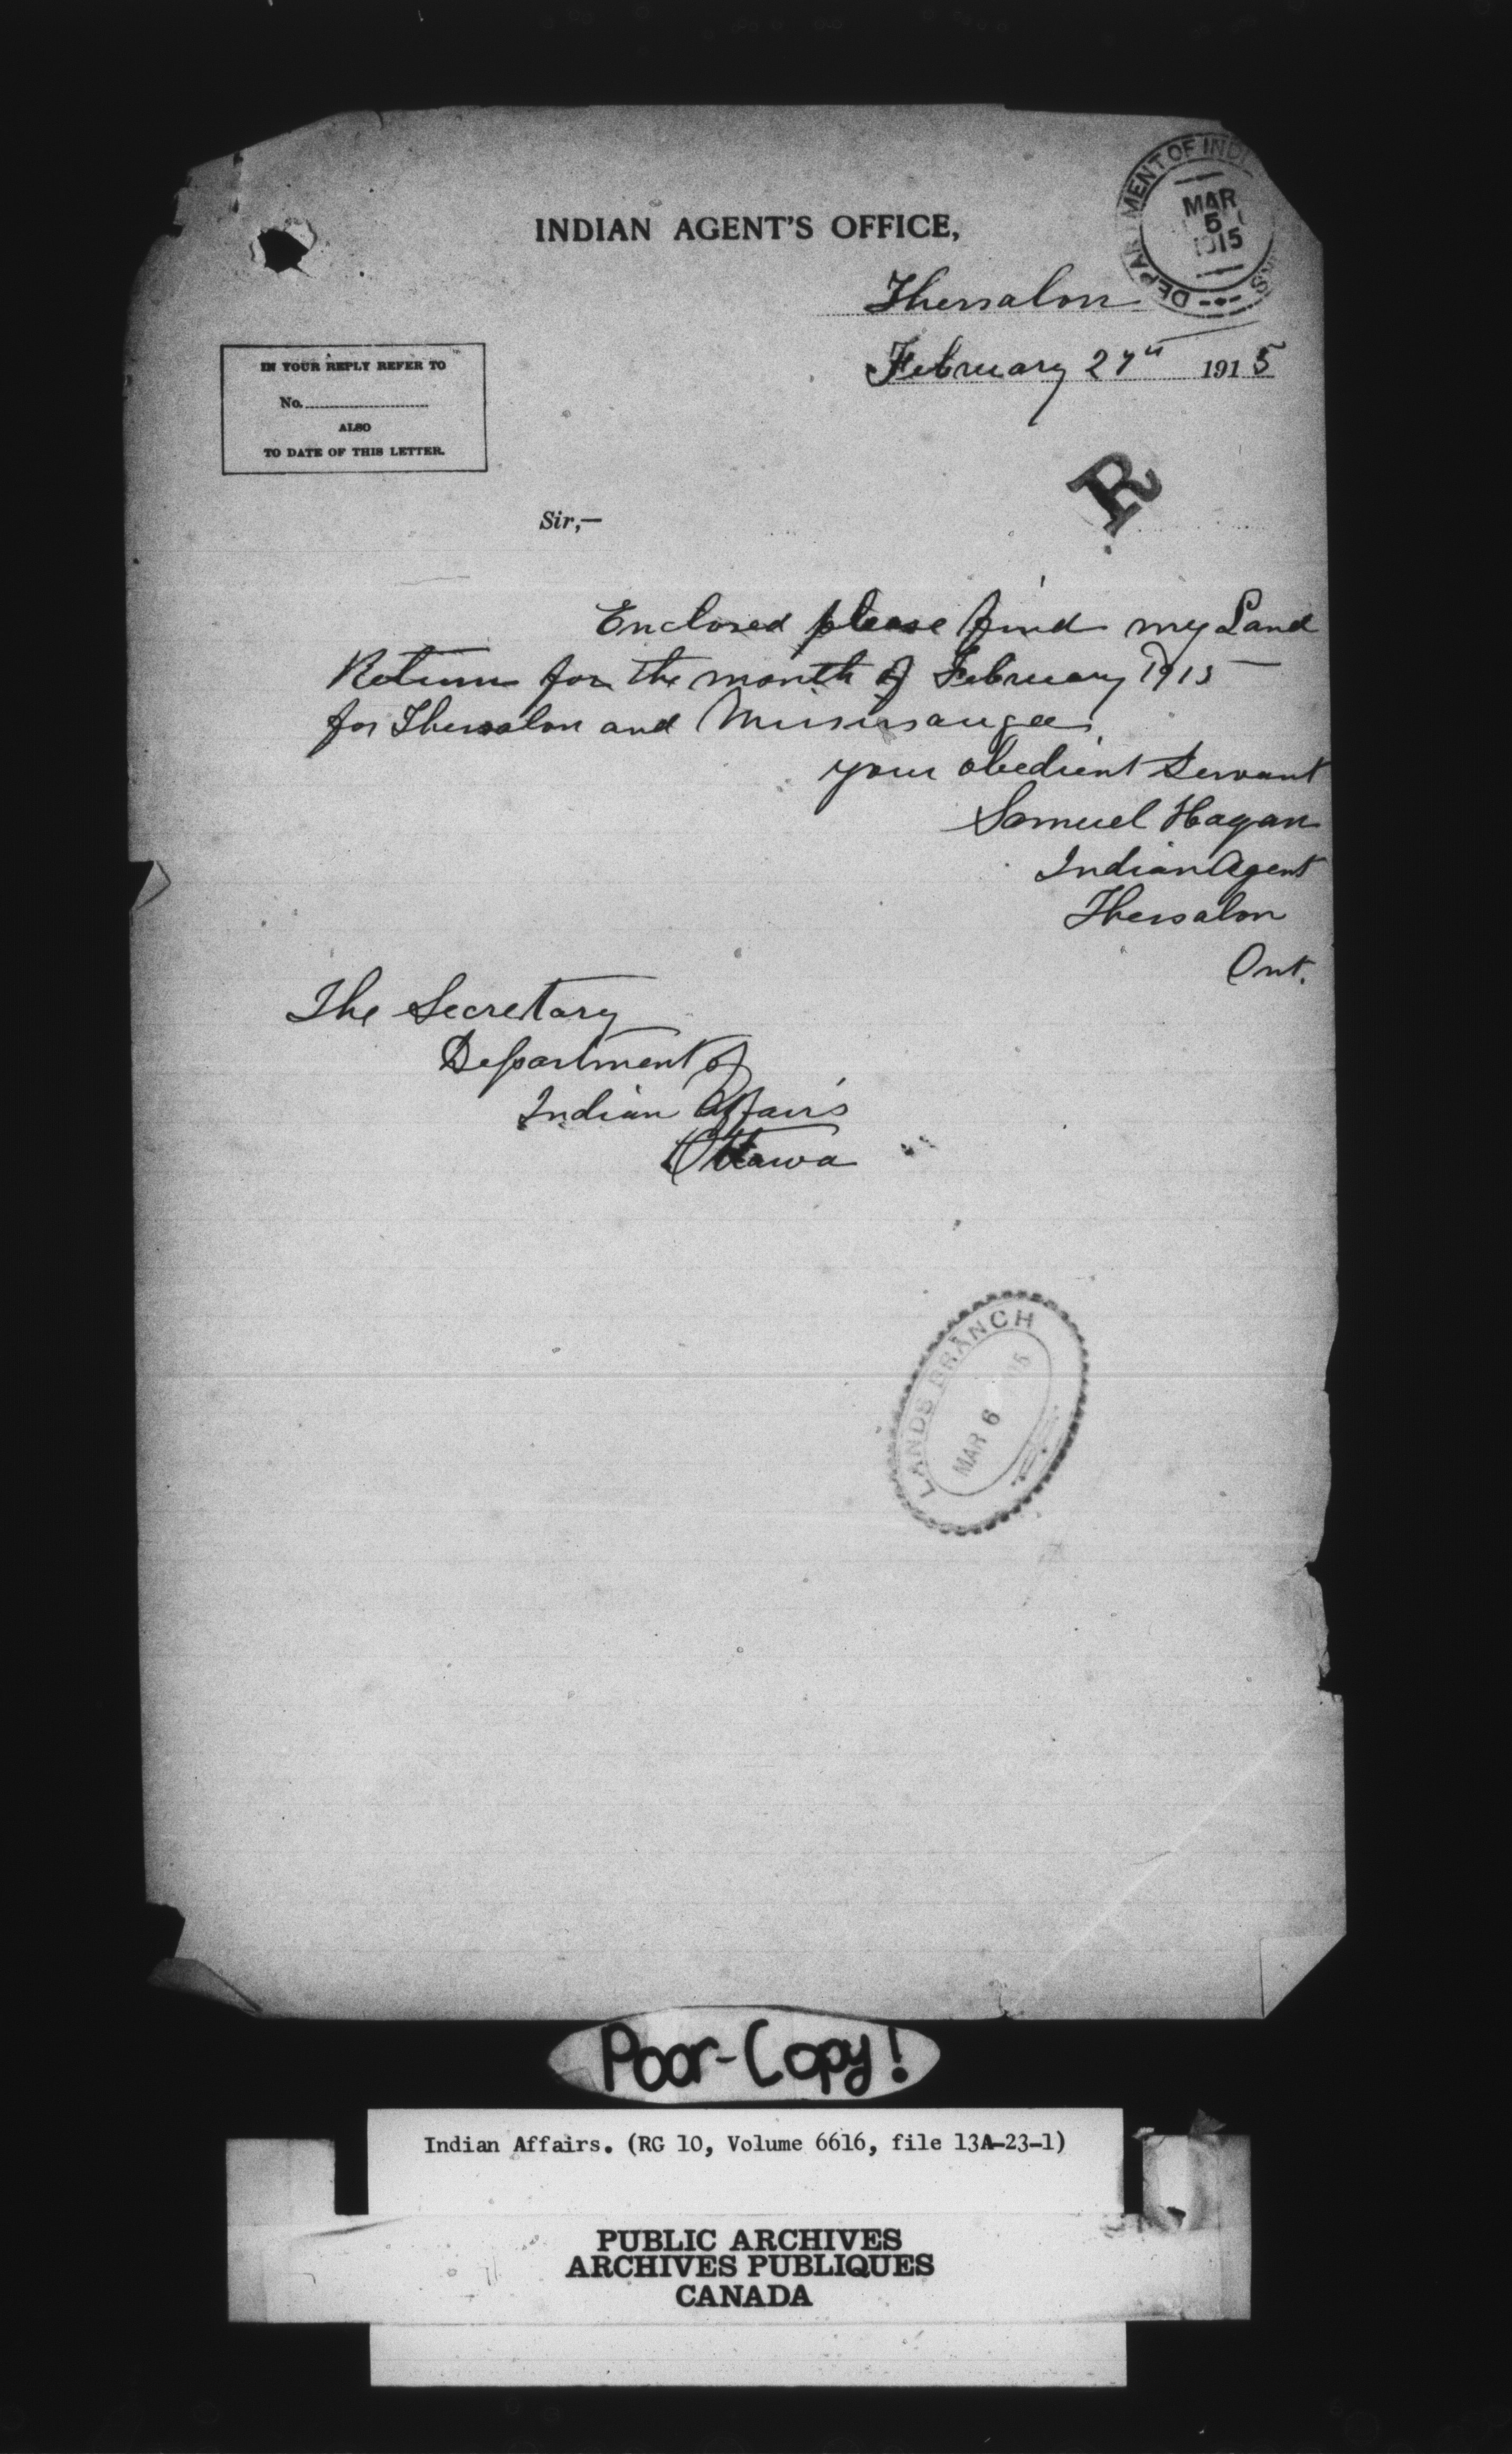 INDIAN AGENT'S OFFICE,
DEPARTMENT OF INDI
MAR
5
1915
Thessalon
February 27th 1915
IN YOUR REPLY REFER TO
No.
ALSO
TO DATE OF THIS LETTER.
R
Sir,—
Enclosed please find my Land
Return for the month of February 1915
for Thessalon and Mississauga.
your obedient Servant
Samuel Hagan
Indian Agent
Thessalon
Ont.
The Secretary
Department of
Indian Affairs
Ottawa
LANDS BRANCH
MAR 6
Poor-Copy!
Indian Affairs. (RG 10, Volume 6616, file 13A-23-1)
PUBLIC ARCHIVES
ARCHIVES PUBLIQUES
CANADA